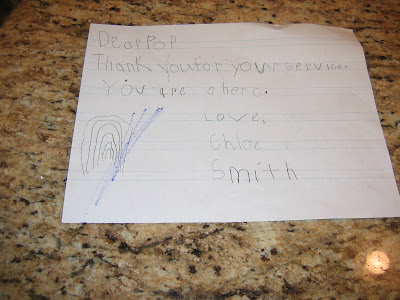 Dear Pop
Thank you for your service.
You are a hero.
Love,
Chloe
Smith